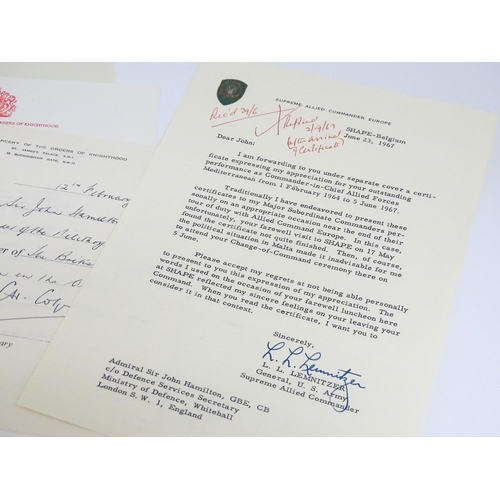 SUPREME ALLIED COMMANDER EUROPE
Rec'd 29/6
Replied
2/9/67
(after arrival
of Certificate)
SHAPE-Belgium
June 23, 1967
Dear John:
I am forwarding to you under separate cover a certi-
ficate expressing my appreciation for your outstanding
performance as Commander-in-Chief Allied Forces
Mediterranean from 1 February 1964 to 5 June 1967.
Traditionally I have endeavored to present these
certificates to my Major Subordinate Commanders per-
sonally on an appropriate occasion near the end of their
tour of duty with Allied Command Europe. In this case,
unfortunately, your farewell visit to SHAPE on 17 May
found the certificate not quite finished. Then, of course,
the political situation in Malta made it inadvisable for me
to attend your Change-of-Command ceremony there on
5 June.
Please accept my regrets at not being able personally
to present to you this expression of my appreciation. The
words I used on the occasion of your farewell luncheon here
at SHAPE reflected my sincere feelings on your leaving your
Command. When you read the certificate, I want you to
consider it in that context.
Sincerely,
L. L. Lemnitzer
L. L. LEMNITZER
General, U. S. Army
Supreme Allied Commander
Admiral Sir John Hamilton, GBE, CB
c/o Defence Services Secretary
Ministry of Defence, Whitehall
London S. W. 1, England
ORDERS OF KNIGHTHOOD
CERY OF THE ORDERS OF KNIGHTHOOD
12th February
Sir John Hamilton